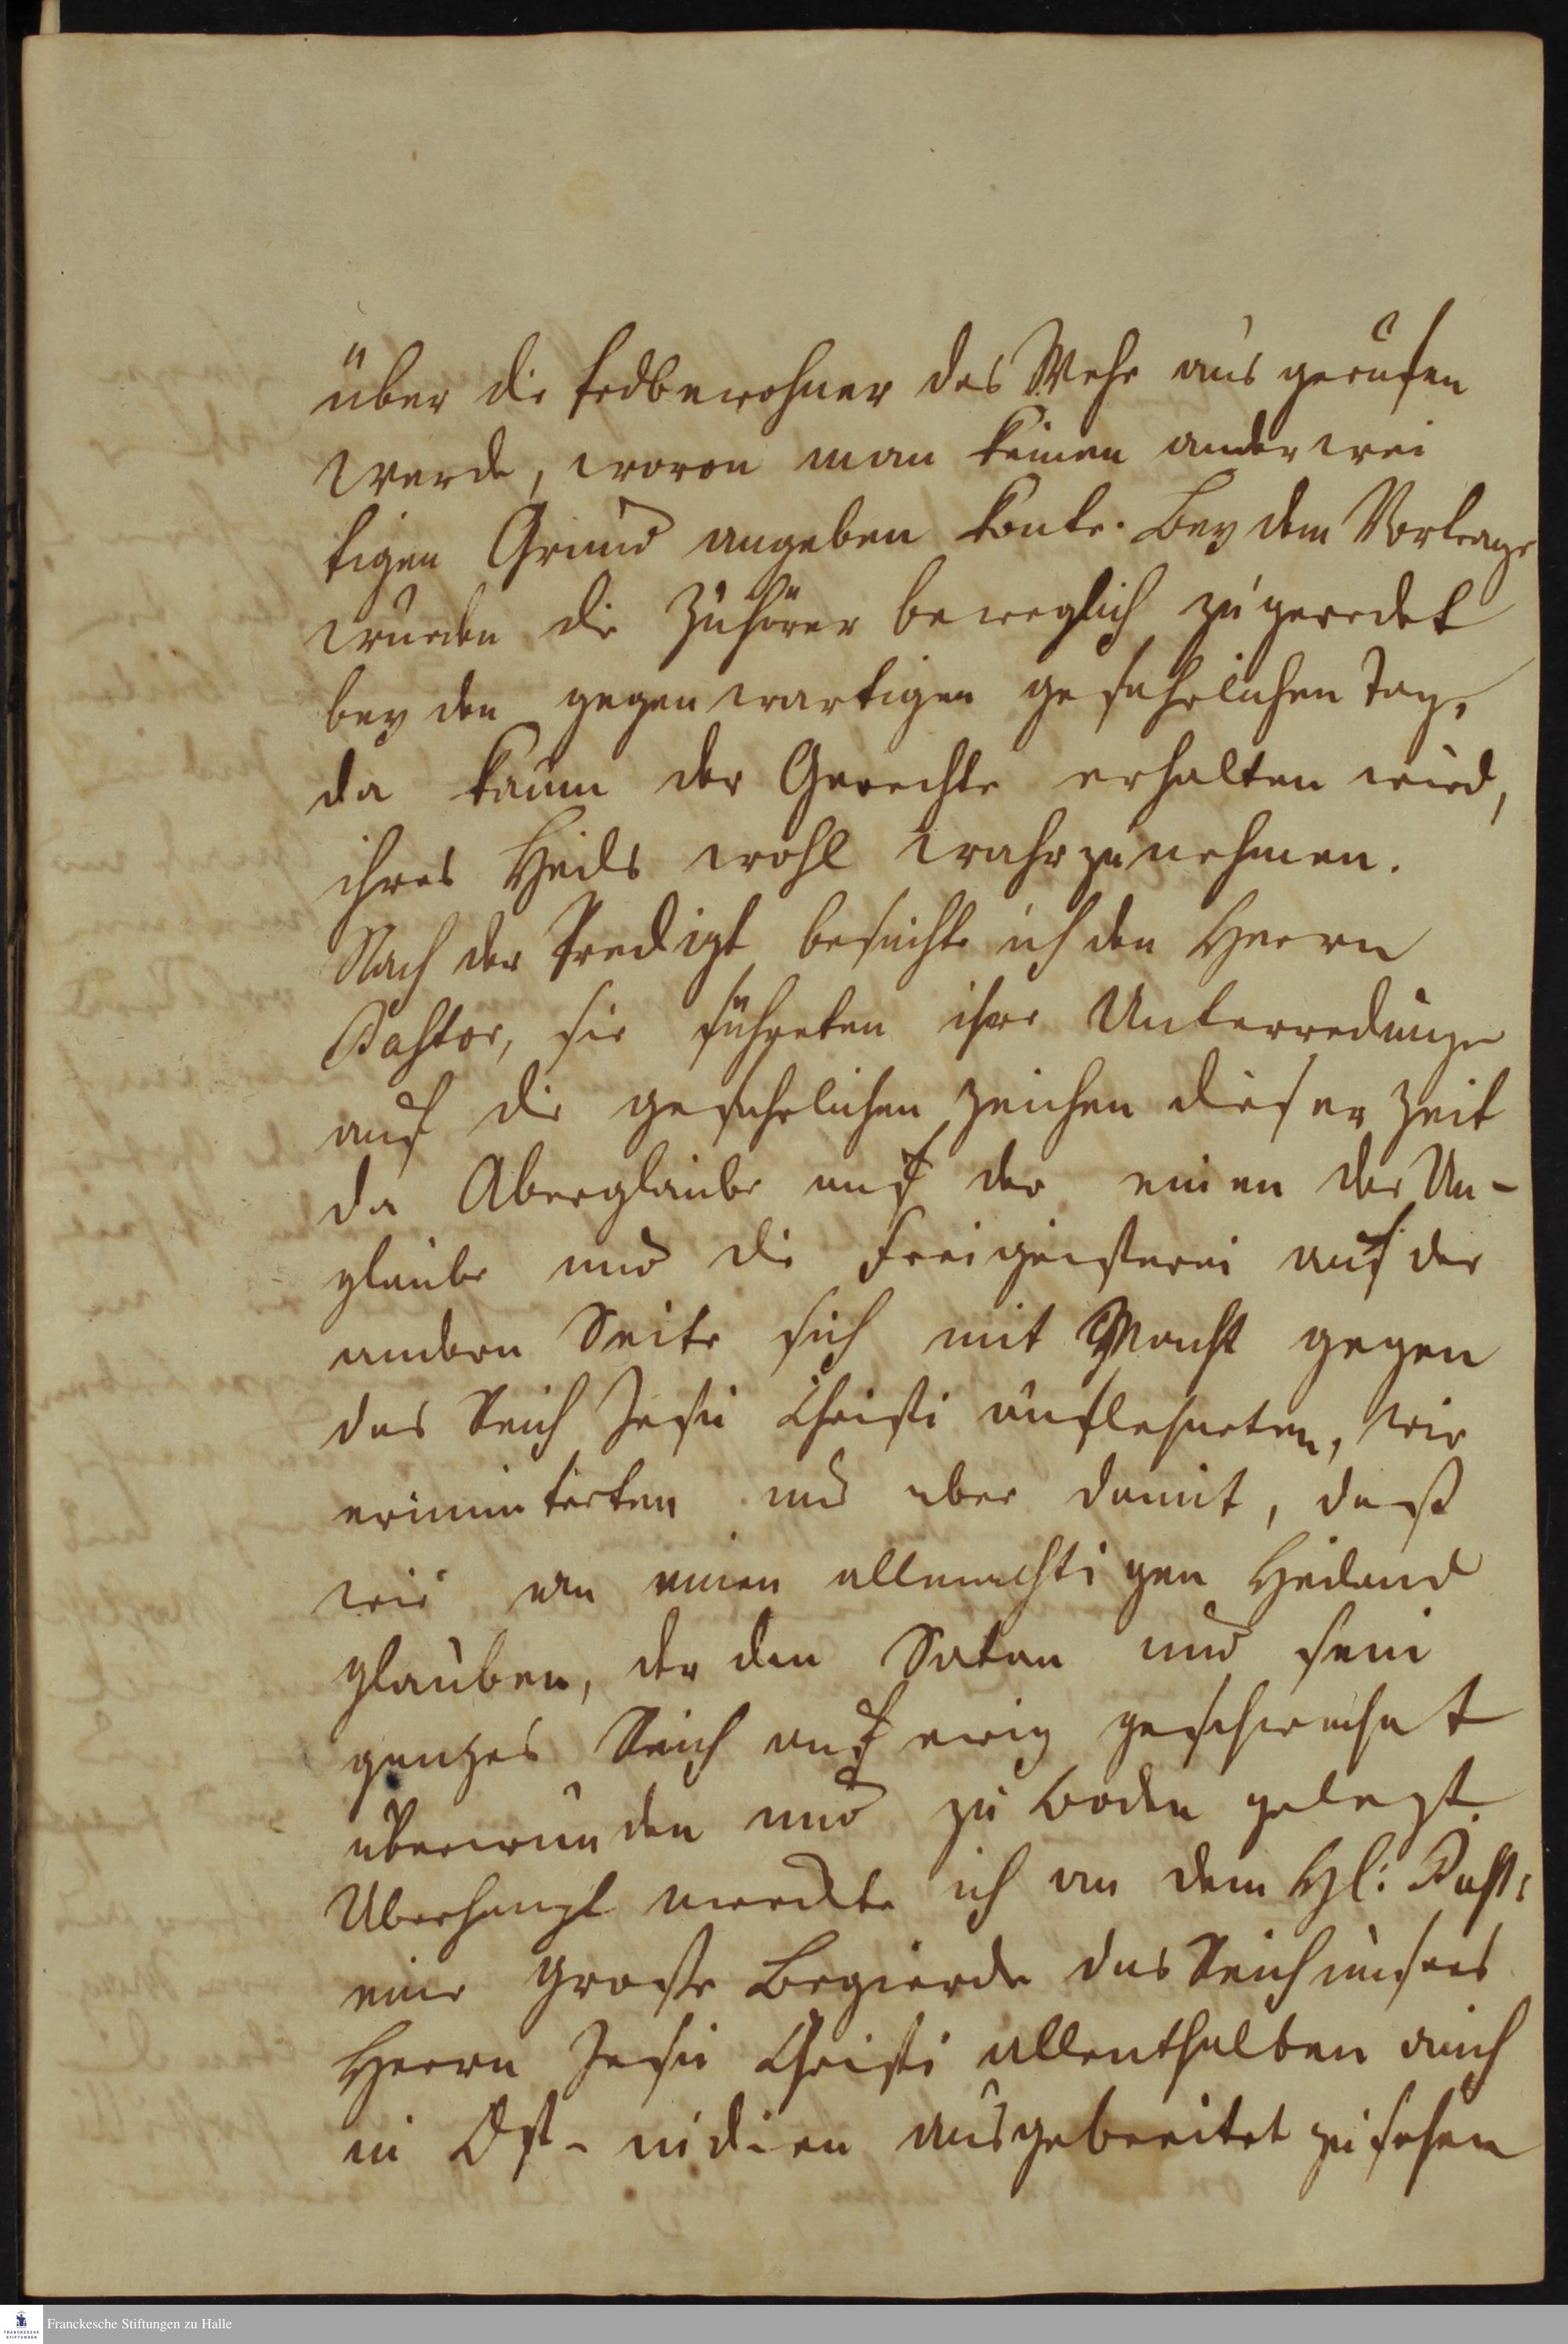 über die Erdbewohner das Wehe aus gerufen
werde, wovon man keinen ander wei
tigen Grund angeben konte. Bey dem Vortrage
wurden die Zuhörer beweglich zu geredet
bey den gegen wartigen gefahrlichen Tag,
da kaum der Gerechte erhalten wird,
ihres Heils wohl wahr zu nehmen.
Nach der Predigt besuchte ich den Herrn
Pastor, sie führeten ihre Unterredunge
auf die gefahrlichen Zeichen dieser Zeit
da Aberglaube auf der einen der Un-
glaube und die Freigeisterei auf der
andern Seite sich mit Macht gegen
das Reich Jesu Christi auflehneten, wir
ermunterten uns aber damit, daß
wir an einen allmachtigen Heiland
glauben, der den Satan und sein
ganzes Reich auf ewig geschwachet
überwunden und zu Boden gelegt.
Uberhaupt merckte ich an dem H: Past:
eine große Begierde das Reich unsers
Herrn Jesu Christi allenthalben auch
in Ost-indien ausgebreitet zu sehen
Franckesche Stiftungen zu Halle
FRANCKESCHE
STIFTUNGEN